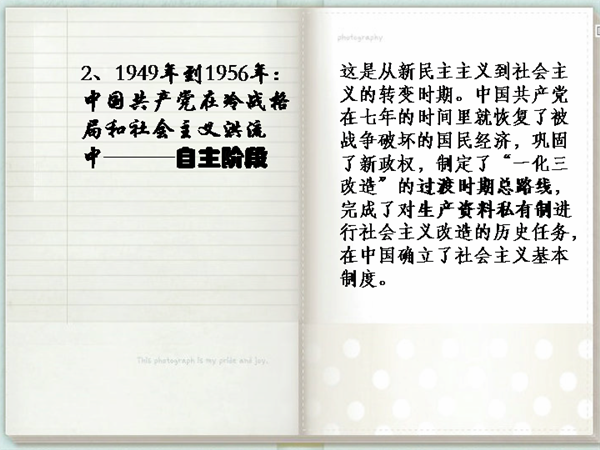 2、1949年到1956年：
中国共产党在冷战格
局和社会主义洪流
中————自主阶段
This photograph is my pride and joy.
photography
这是从新民主主义到社会主
义的转变时期。中国共产党
在七年的时间里就恢复了被
战争破坏的国民经济，巩固
了新政权，制定了“一化三
改造”的过渡时期总路线，
完成了对生产资料私有制进
行社会主义改造的历史任务，
在中国确立了社会主义基本
制度。